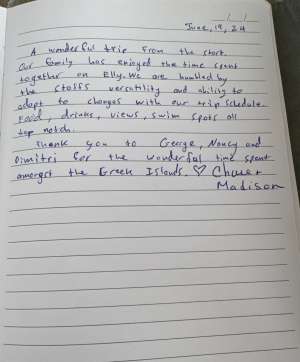 / /
June, 19, 24
A wonderful trip from the start.
Our family has enjoyed the time spent
together on Elly. We are humbled by
the staffs versatility and ability to
adapt to changes with our trip schedule.
Food, drinks, views, swim spots all
top notch.
Thank you to George, Nancy and
Dimitri for the wonderful time spent
amongst the Greek Islands. ♡ Chase +
Madison